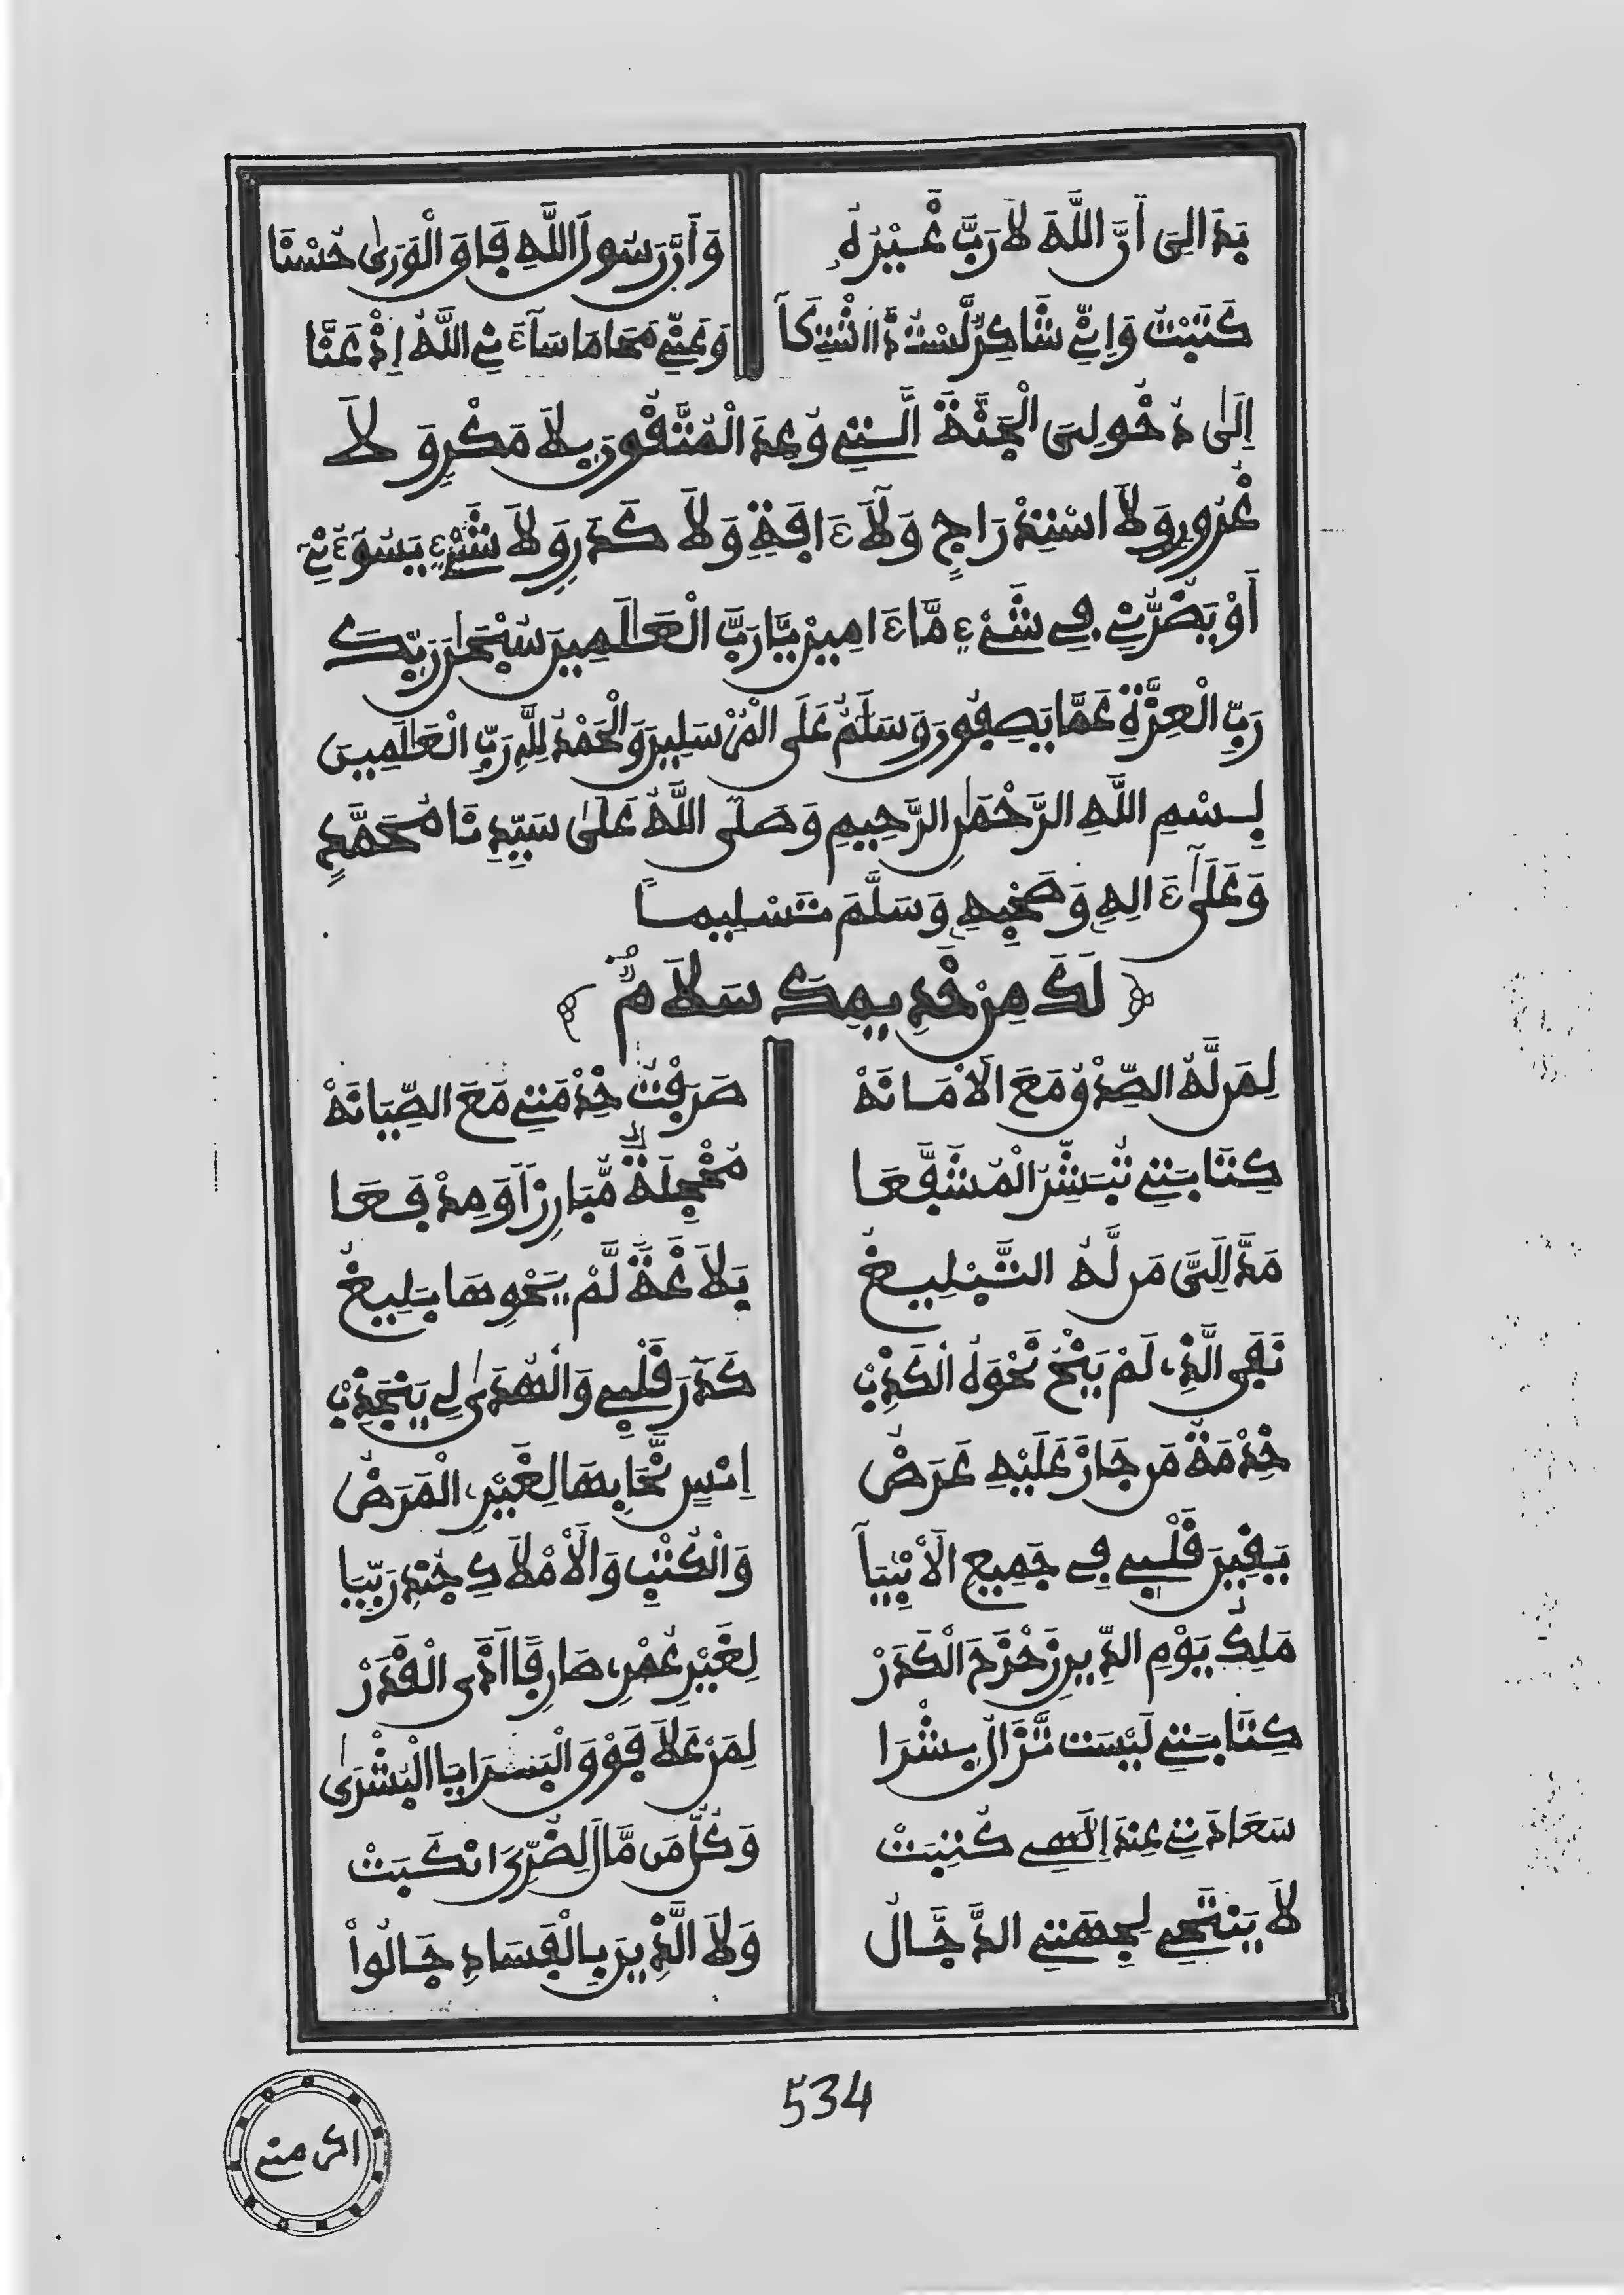 بَدَا لِىَ أَنَّ اللَّهَ لَا رَبَّ غَيْرُهُ وَأَنَّ رَسُولَ اللَّهِ فَاقَ الْوَرَىٰ حُسْنَا
كَتَبْتُ وَإِنِّي شَاكِرٌ لَّسْتُ ذَا اشْتِكَا وَعَنِّي مَحَا مَا سَاءَنِي اللَّهُ إِذْ عَنَّا
إِلَىٰ دُخُولِىَ الْجَنَّةَ الَّتِي وُعِدَ الْمُتَّقُونَ بِلَا مَكْرٍ وَلَا
غُرُورٍ وَلَا اسْتِدْرَاجٍ وَلَا ءَافَةٍ وَلَا كَدَرٍ وَلَا شَيْءٍ يَسُوءُنِي
أَوْ يَضُرُّنِي فِي شَيْءٍ مَّا ءَامِينَ يَا رَبَّ الْعَٰلَمِينَ سُبْحَٰنَ رَبِّكَ
رَبِّ الْعِزَّةِ عَمَّا يَصِفُونَ وَسَلَٰمٌ عَلَى الْمُرْسَلِينَ وَالْحَمْدُ لِلَّهِ رَبِّ الْعَٰلَمِينَ
بِسْمِ اللَّهِ الرَّحْمَٰنِ الرَّحِيمِ وَصَلَّى اللَّهُ عَلَىٰ سَيِّدِنَا مُحَمَّدٍ
وَعَلَىٰ ءَالِهِ وَصَحْبِهِ وَسَلَّمَ تَسْلِيمًا
﴿ لَكَ مِنْ خَدِيمِكَ سَلَامٌ ﴾
لِمَن لَّهُ الصِّدْقُ مَعَ الْأَمَانَهْ صَرَفْتُ خِدْمَتِي مَعَ الصِّيَانَهْ
كِتَابَتِي تُبَشِّرُ الْمُشَفَّعَا مُخْجِلَةً مُّبَارِزًا وَمِدْفَعَا
مَدَّ إِلَىَّ مَن لَّهُ التَّبْلِيغُ بَلَاغَةً لَّمْ يَحْوِهَا بَلِيغُ
نَفَى الَّذِي لَمْ يَنْحُ نَحْوَهُ الْكَذِبْ كَدَرَ قَلْبِي وَالْهُدَىٰ لِي يَنْجَذِبْ
خِدْمَةُ مَن جَازَ عَلَيْهِ عَرَضُ إِنْسٍ نَحَا بِهَا لِغَيْرِي الْمَرَضُ
يَقِينَ قَلْبِي فِي جَمِيعِ الْأَنْبِيَا وَالْكُتْبِ وَالْأَمْلَاكِ جُنْدِ رَبِّيَا
مَلِكُ يَوْمِ الدِّينِ زَحْزَحَ الْكَدَرْ لِغَيْرِ عُمْرِي صَارِفًا أَذَى الْقَدَرْ
كِتَابَتِي لَيْسَت تَّزَالُ بِشْرَا لِمَنْ عَلَا فَوْقَ الْبَرَايَا الْبُشْرَىٰ
سَعَادَتِي عِنْدَ إِلَٰهِي كُتِبَتْ وَكُلُّ مَن مَّالَ لِضُرِّىَ انْكَبَتْ
لَا يَنْتَحِي لِجِهَتِي الدَّجَّالُ وَلَا الَّذِينَ بِالْفَسَادِ جَالُواْ
534
اكر مني